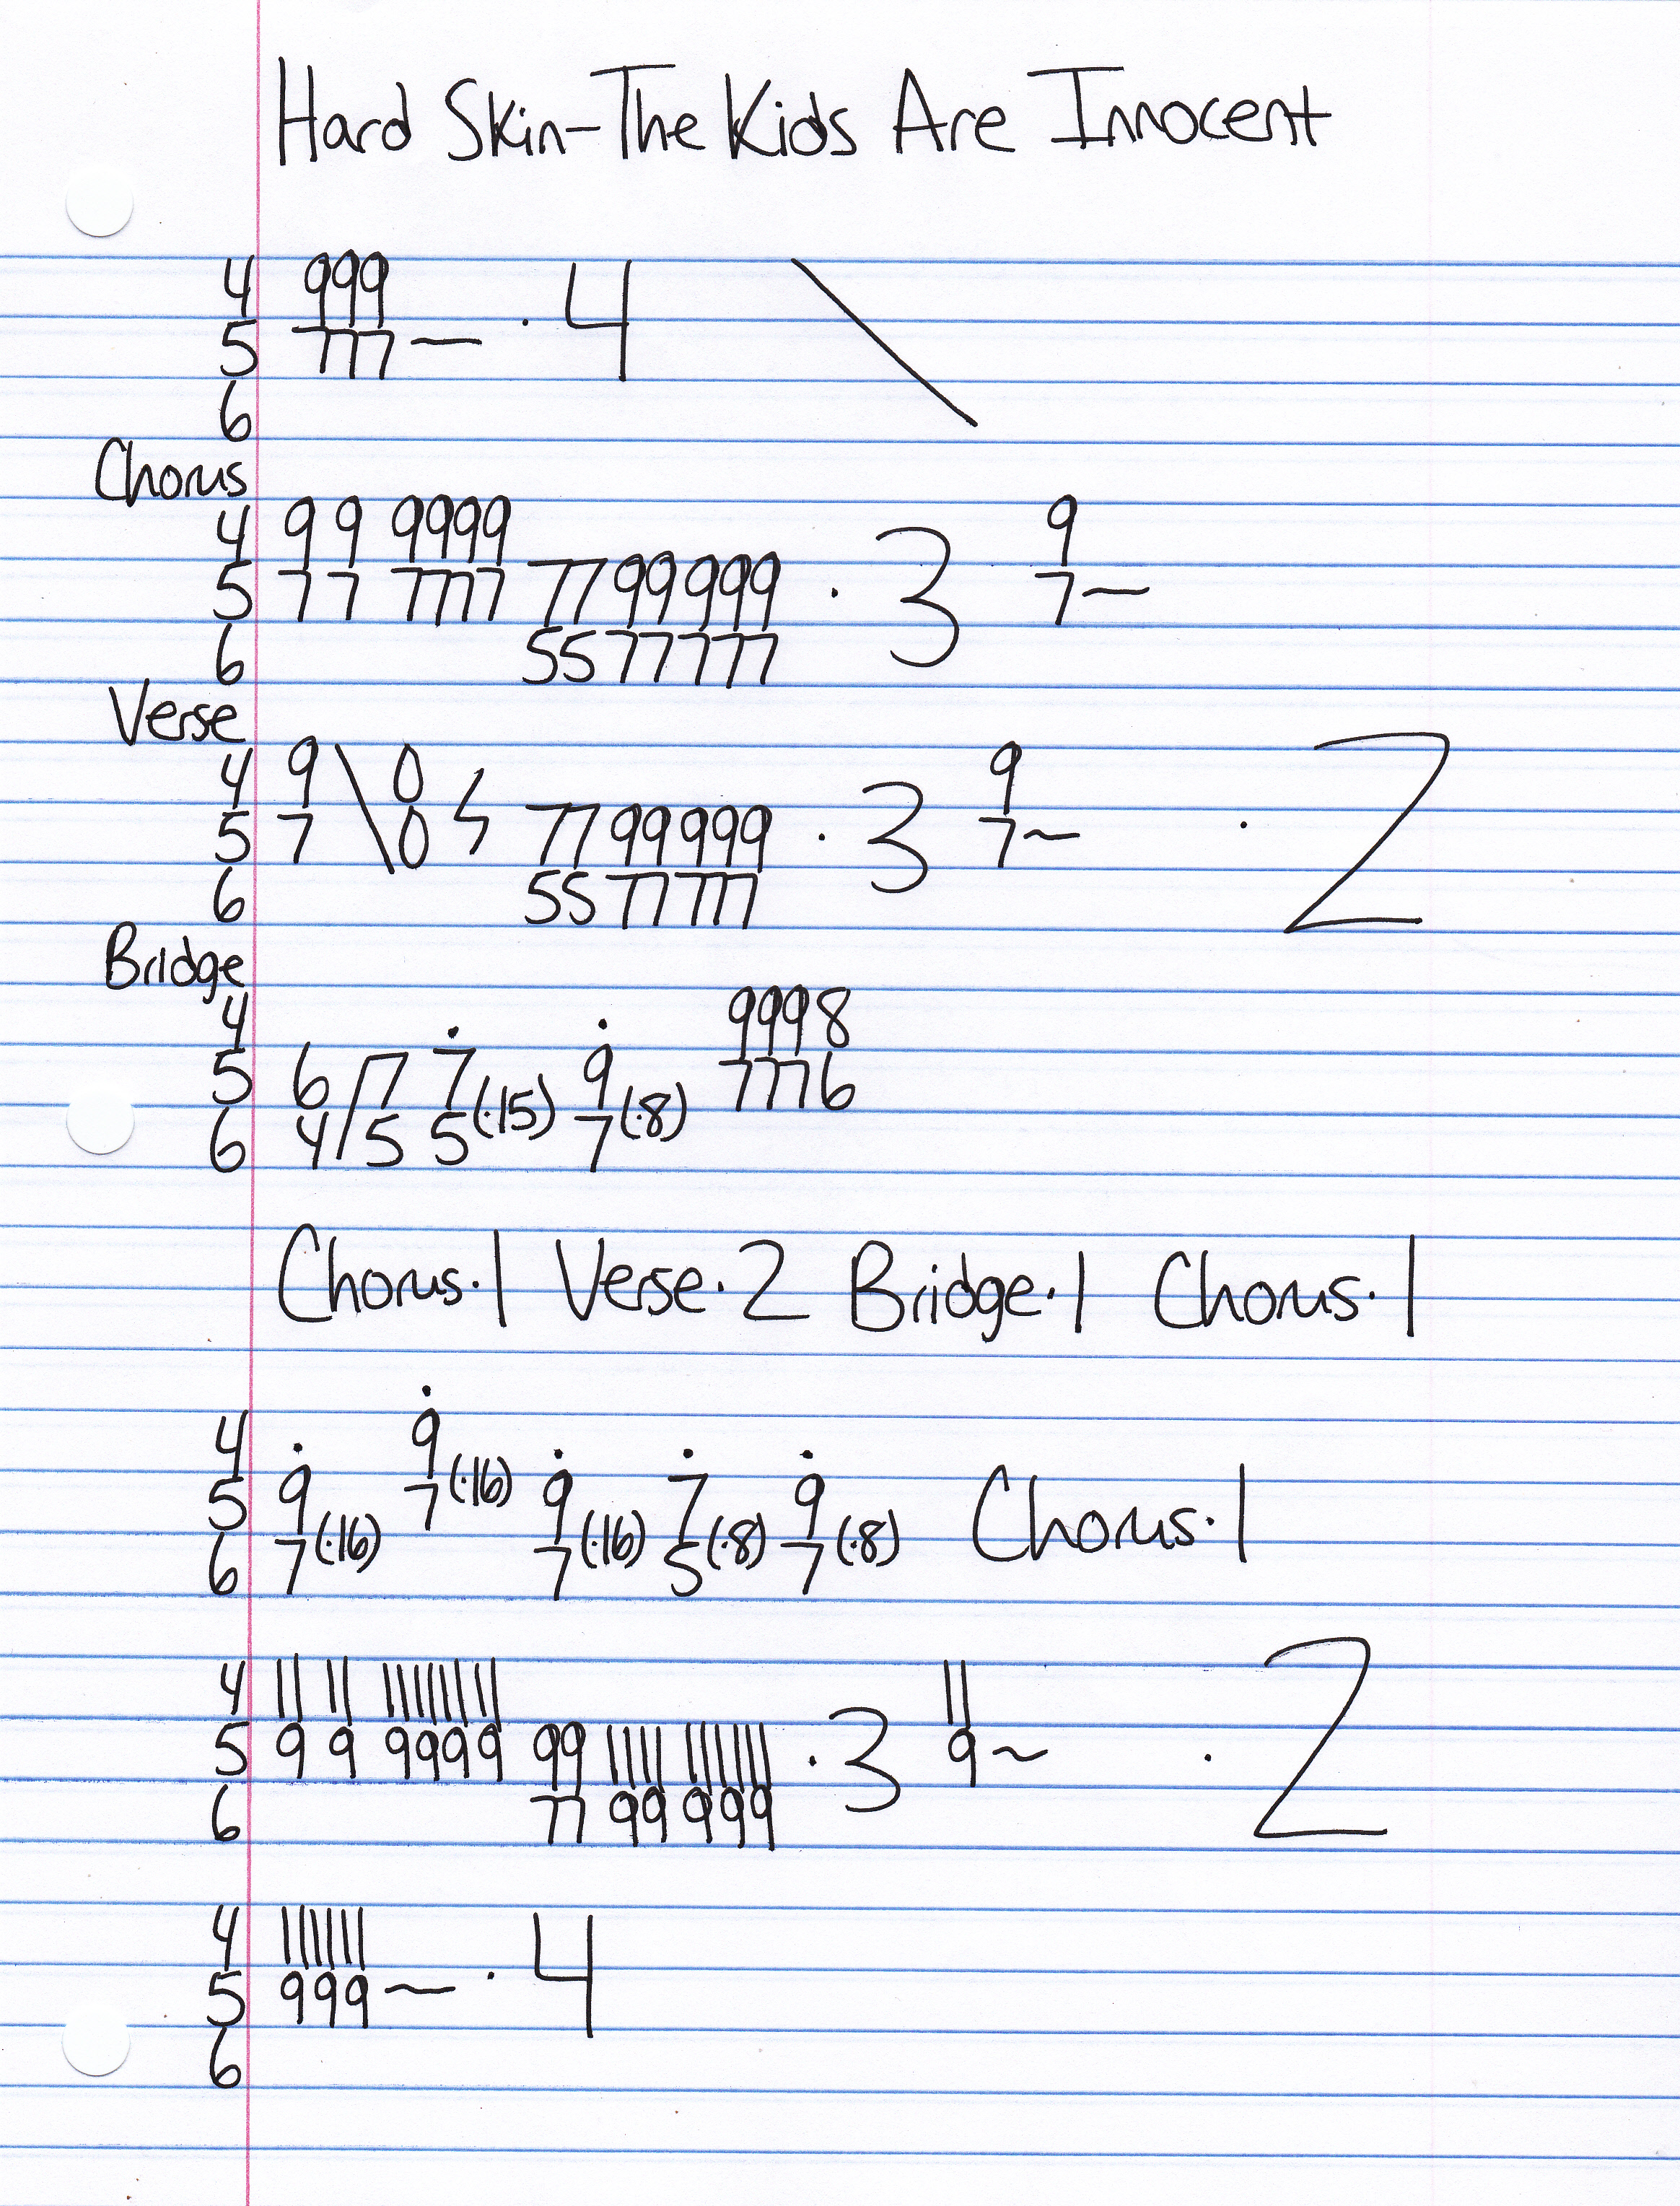 Hard Skin-The Kids Are Innocent
4 999
5 777~ · 4 \
6
Chorus
4 9 9 9999 9
5 7 7 7777 77 99 999 · 3 7~
6 55 77 777
Verse
4 9 \ 0 9
5 7 \ 0 ϟ 77 99 999 · 3 7~ · 2
6 55 77 777
Bridge
4 9998
5 6/7 7̇ 9̇ 7776
6 4/5 5(·15) 7(·8)
Chorus·1 Verse·2 Bridge·1 Chorus·1
4 9̇
5 9̇ 7(·16) 9̇ 7̇ 9̇ Chorus·1
6 7(·16) 7(·16) 5(·8) 7(·8)
4 11 11 11111111 11
5 9 9 9999 99 1111 111111 · 3 9~ · 2
6 77 99 999
4 111111
5 999~ · 4
6